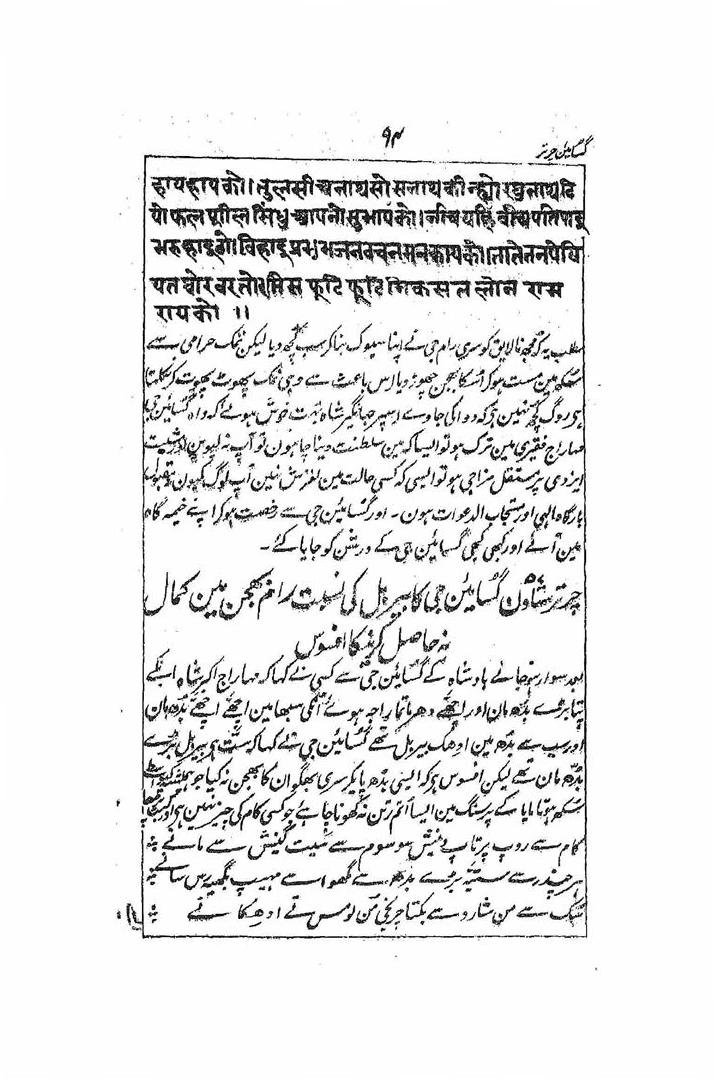 گسائین چرتر
۹۴
हायहायको॥तुलसीअनाथसोसनाथकीन्होरघुनाथदि
योफलशीलसिंधुआपनेसुभायको।नीचयहिबीचपतिपाइ
भरुहाइगो।विहाइप्रभुभजनवचनमनकायको॥तातेतनपेषि
यतघोरबरतोरमिसफूटिफूटिनिकसतलोनराम
रायको ॥
مطلب یہ کہ مجھ نالایق کو سری رام جی نے اپنا سیوک بناکر سب کچھ دیا لیکن نمک حرامی سے
سکھ مین مست ہوکر اُسکا بھجن چھوڑ دیا اِس باعث سے وہی نمک پھوٹ پھوٹ کر نکلتا
ہی روگ کچھ نہین ہی کہ دوا کی جاوے اسپر جہانگیر شاہ بہت خوش ہوئے کہ واہ گسائین جی
مہاراج فقیری مین ترک ہو تو ایسا کہ مین سلطنت دینا چاہون تو آپ نہ لیوین اور مشیت
ایزدی پر مستقل مزاجی ہو تو ایسی کہ کسی حالت مین لغزش نہین آپ لوگ کیون نہ مقبول
بارگاہ الہی اور مستجاب الدعوات ہون ۔ اور گسائین جی سے رخصت ہوکر اپنے خیمہ گاہ
مین آئے اور کبھی کبھی گسائین جی کے درشن کو جایا کئے ۔
چرتر ستاون گسائین جی کا بیربل کی نسبت رام بھجن مین کمال
نہ حاصل کرنیکا افسوس
بعد سوار ہوجانے بادشاہ کے گسائین جی سے کسی نے کہا کہ مہاراج اکبر شاہ اِنکے
پتا بڑے بدھ مان اور اچھے دھرماتما راجہ ہوئے اُنکی سبھا مین اچھے اچھے بدھ مان
اور سب سے بدھ مین ادھک بیربل تھے گسائین جی نے کہا کہ ست ہی بیربل بڑے
بدھ مان تھے لیکن افسوس ہی کہ ایسی بدھ پاکر سری بھگوان کا بھجن نہ کیا جو ہمیشہ کیواسطے
سکھ ہوتا مایا کے پرسنگ مین ایسا اُتم رتن نہ کھونا چاہئے جو کسی کام کی چیز نہین ہی اور
کام سے روپ پرتاپ دنیش سے سوم سے سیت گنیش سے مانے
ہرچند سے بڑے بدھ سے
سے من شارد سے بکتا چرنجی من لومس تے ادھکانے